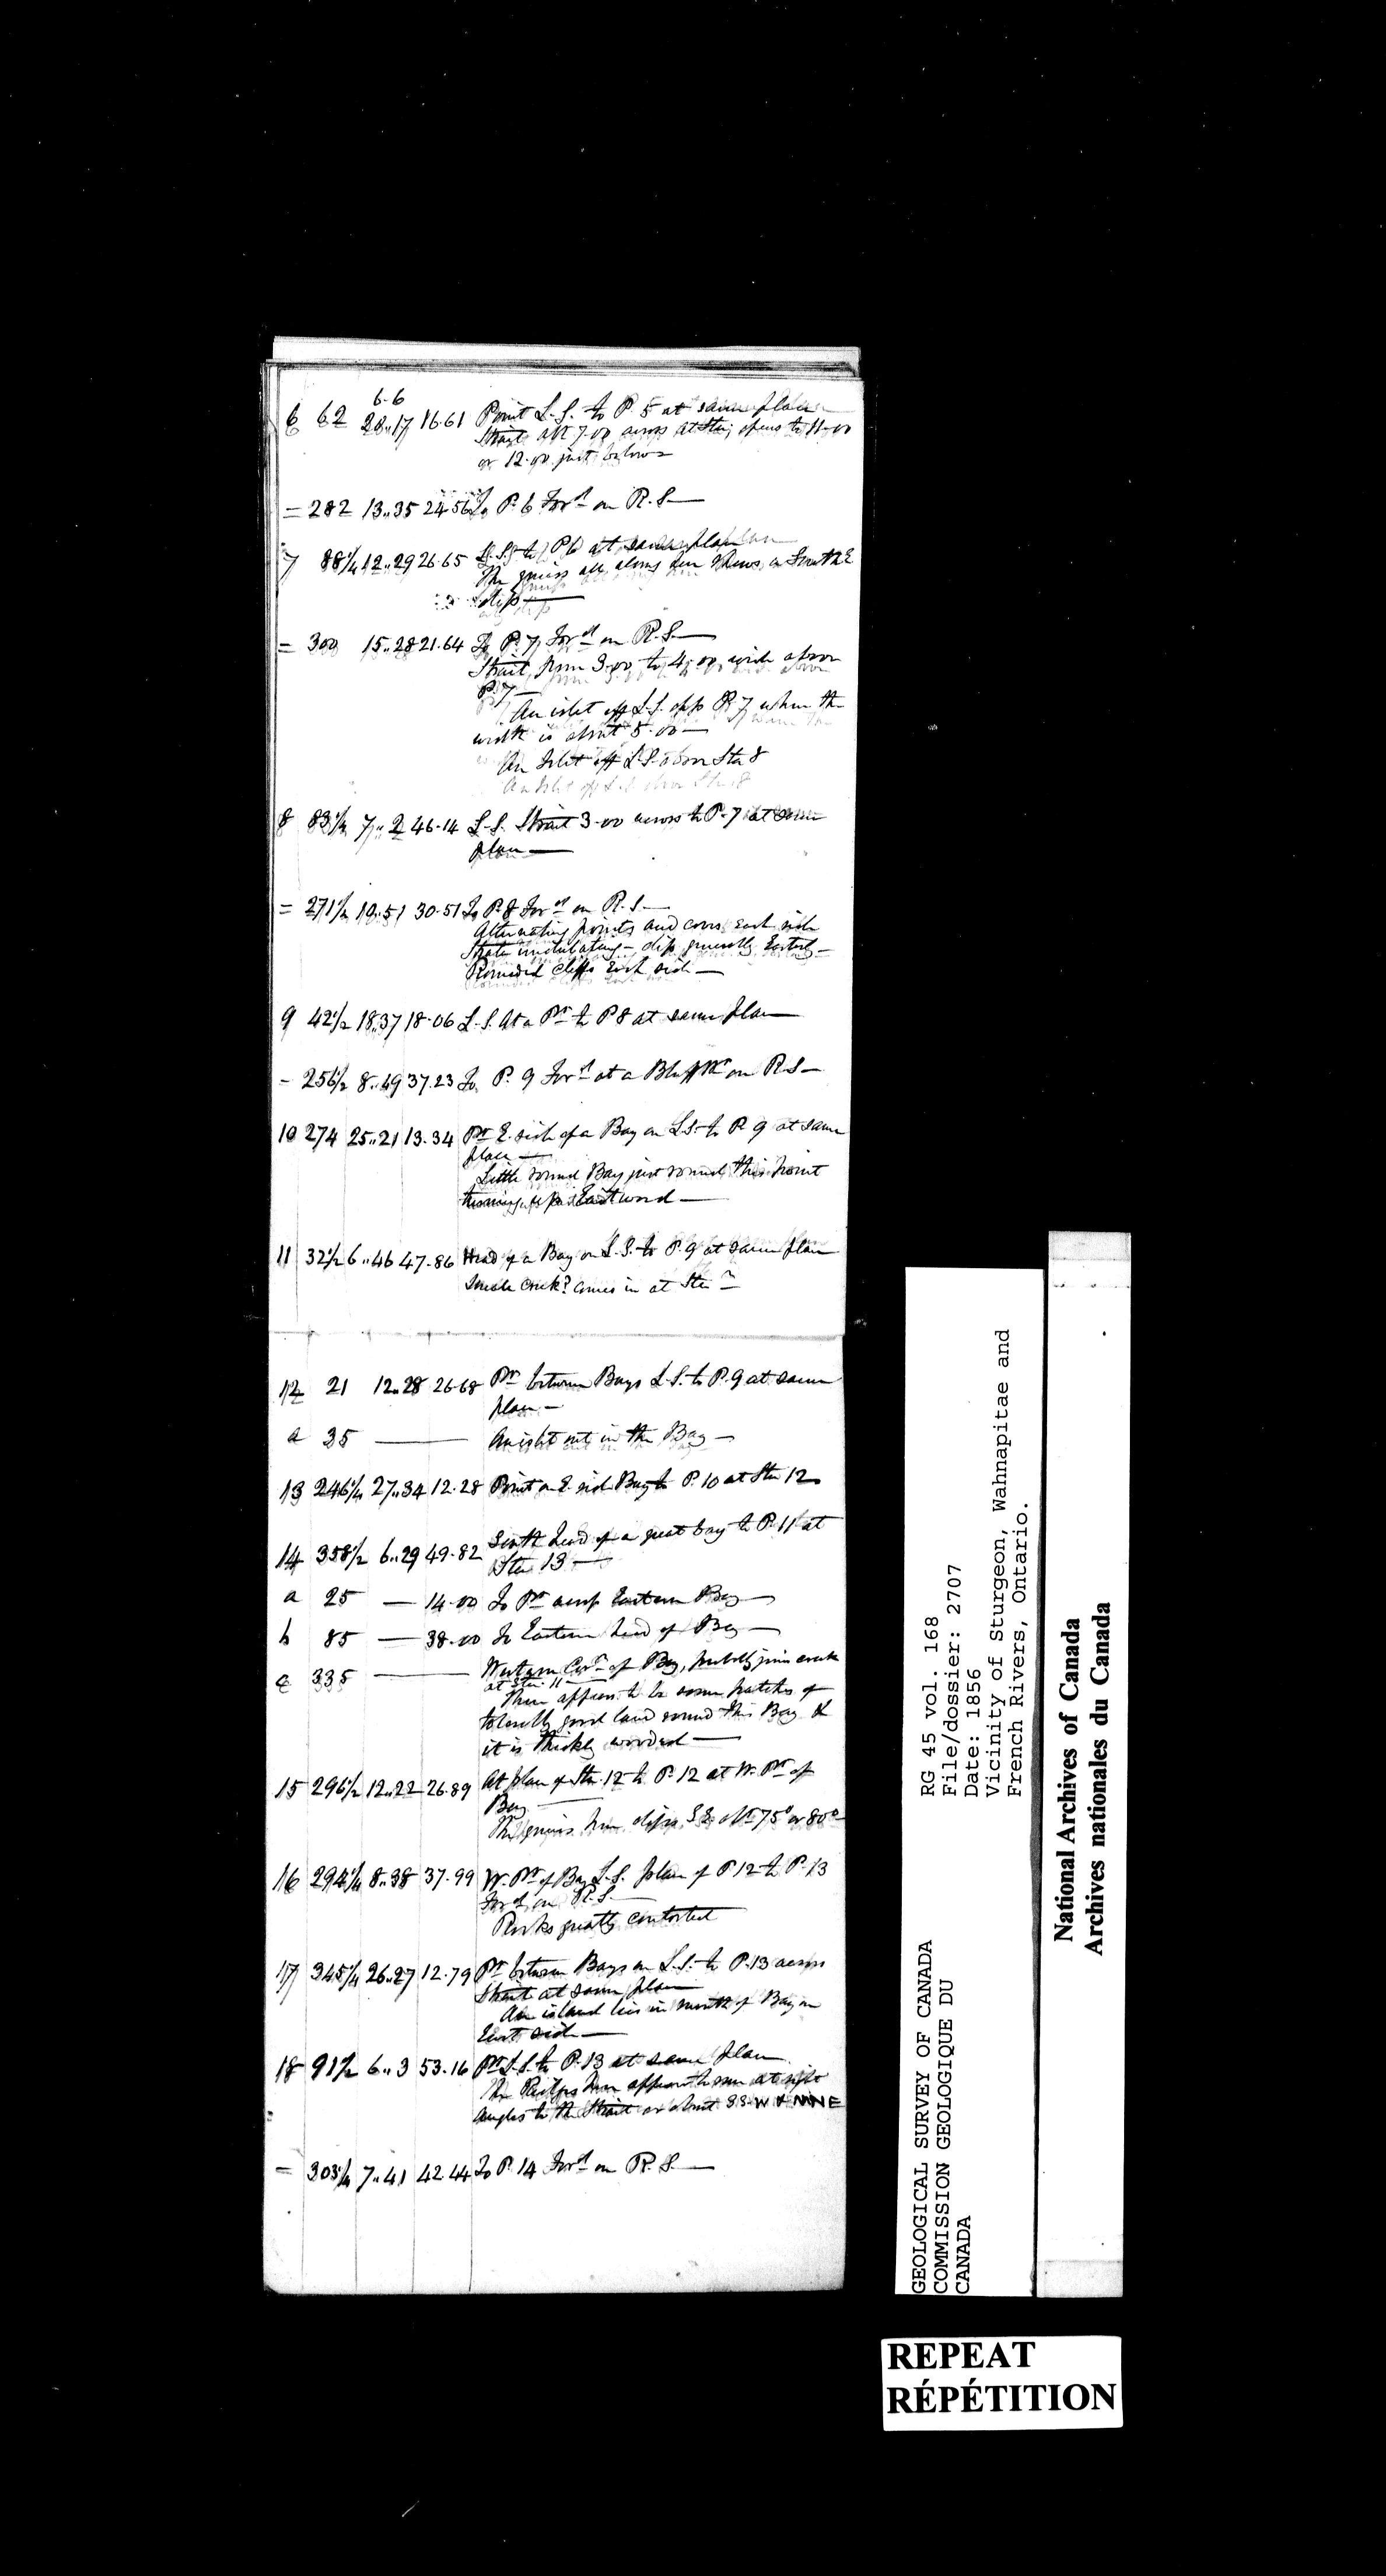 6.6
6 62 28..17 16.61 Point L.S. to P. 5 at same place
Strait abt 7.00 across at Sta; opens to 11.00
or 12.00 just below
= 282 13..35 24.56 To P. 6 Ford on R.S.—
7 88¼ 12..29 26.65 L.S. to P6 at same place
The gneiss all along here shows a South E
dip—
= 300 15..28 21.64 To P. 7, Ford on R.S.—
Strait, from 3.00 to 4.00, wide above
P. 7—
An islet off L.S. opp P. 7 where the
width is about 5.00—
An Islet off L.S. above Sta 8
8 83½ 7..2 46.14 L.S. Strait 3.00 across to P. 7 at same
place—
= 271½ 10..51 30.51 To P. 8 Ford on R.S—
Alternating points and coves each side
Strata undulating— dip generally Easterly—
Rounded cliffs each side—
9 42½ 18..37 18.06 L.S. At a Pt to P 8 at same place
= 256½ 8..49 37.23 To P. 9 Ford at a Bluff Pt on R.S—
10 274 25..21 13.34 Pt E. side of a Bay on L.S. to P. 9 at same
place—
Little round Bay just round this point
Eastward—
11 32½ 6..46 47.86 Head of a Bay on L.S. to P. 9 at same place
Small creek? comes in at Stan
12 21 12..28 26.68 Pt between Bays L.S. to P. 9 at same
place—
a 35 — An islet out in the Bay—
13 246¼ 27..34 12.28 Point on E. side Bay to P. 10 at Sta 12
14 358½ 6..29 49.82 South head of a great bay to P. 11 at
Sta 13—
a 25 — 14.00 To Pt across Eastern Bay—
b 85 — 38.00 To Eastern head of Bay—
c 335 — Western Corr of Bay, probably joins creek
at Sta. 11—
There appears to be some patches of
tolerably good land round this Bay &
it is thickly wooded—
15 296½ 12..22 26.89 At place of Sta. 12 to P. 12 at W. Pt of
Bay—
The gneiss here dips S.E. abt 75° or 80°—
16 294¼ 8..38 37.99 W. Pt of Bay L.S. place of P 12 to P. 13
Ford, on R.S.—
Rocks greatly contorted
17 345¼ 26..27 12.79 Pt between Bays on L.S. to P. 13 across
Strait at same place
An island lies in mouth of Bay on
East side—
18 91½ 6..3 53.16 Pt L.S. to P. 13 at same place
The here appear to run at right
angles to the Strait or about S.S.W & NNE
= 303¼ 7..41 42.44 To P. 14 Ford on R.S.—
GEOLOGICAL SURVEY OF CANADA
COMMISSION GEOLOGIQUE DU
CANADA
RG 45 vol. 168
File/dossier: 2707
Date: 1856
Vicinity of Sturgeon, Wahnapitae and
French Rivers, Ontario.
National Archives of Canada
Archives nationales du Canada
REPEAT
RÉPÉTITION